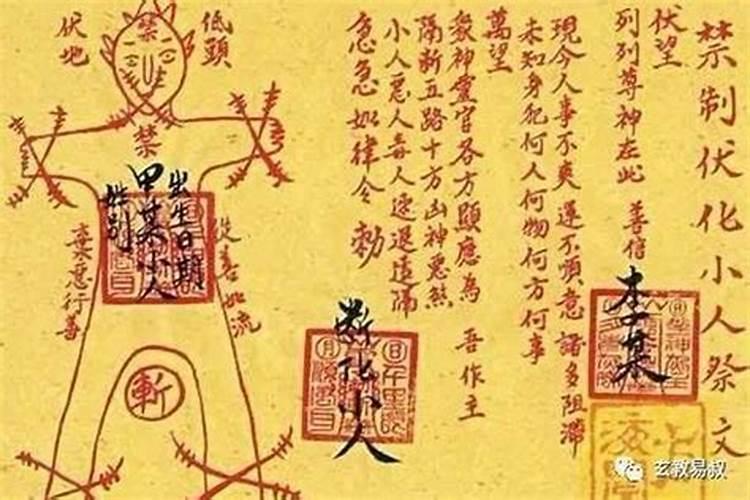 禁制伏化小人祭文
伏望
列列尊神在此 善信
李某
現今人事不爽 運不順意 諸多阻滯
未知身犯何人何物何方何事
萬望
眾神靈官各方顯應為 吾作主
隔斷五路十方凶神惡煞
小人惡人毒人速退遠隔
急急如律令 勅
斷化小人
低頭
伏地
禁
禁
出生日期
甲某小人
姓别
棄惡行善
從善如流
斬
玄教易叔